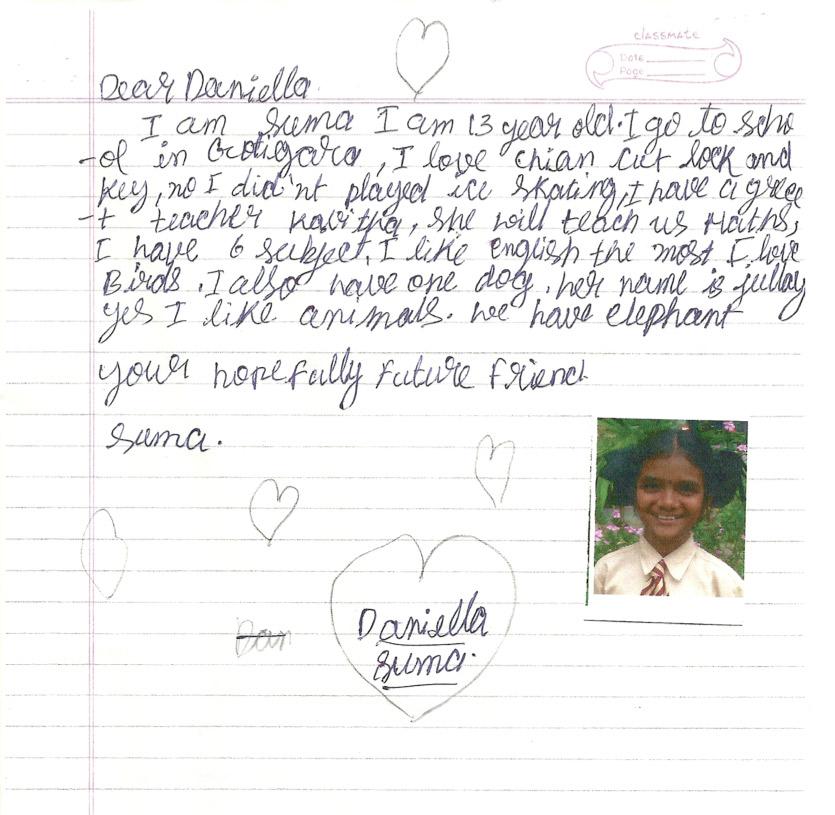 classmate
Date
Page
Dear Daniella
I am Suma I am 13 year old. I go to scho
-ol in , I love chian cut lock and
key, no I did'nt played ice skating, I have a gree
-t teacher kavitha, she will teach us Maths,
I have 6 subject, I like english the most I love
Birds. I also have one dog. her name is jullay
yes I like animals. we have elephant
your hopefully future friend
Suma.
Dan
Daniella
Suma.